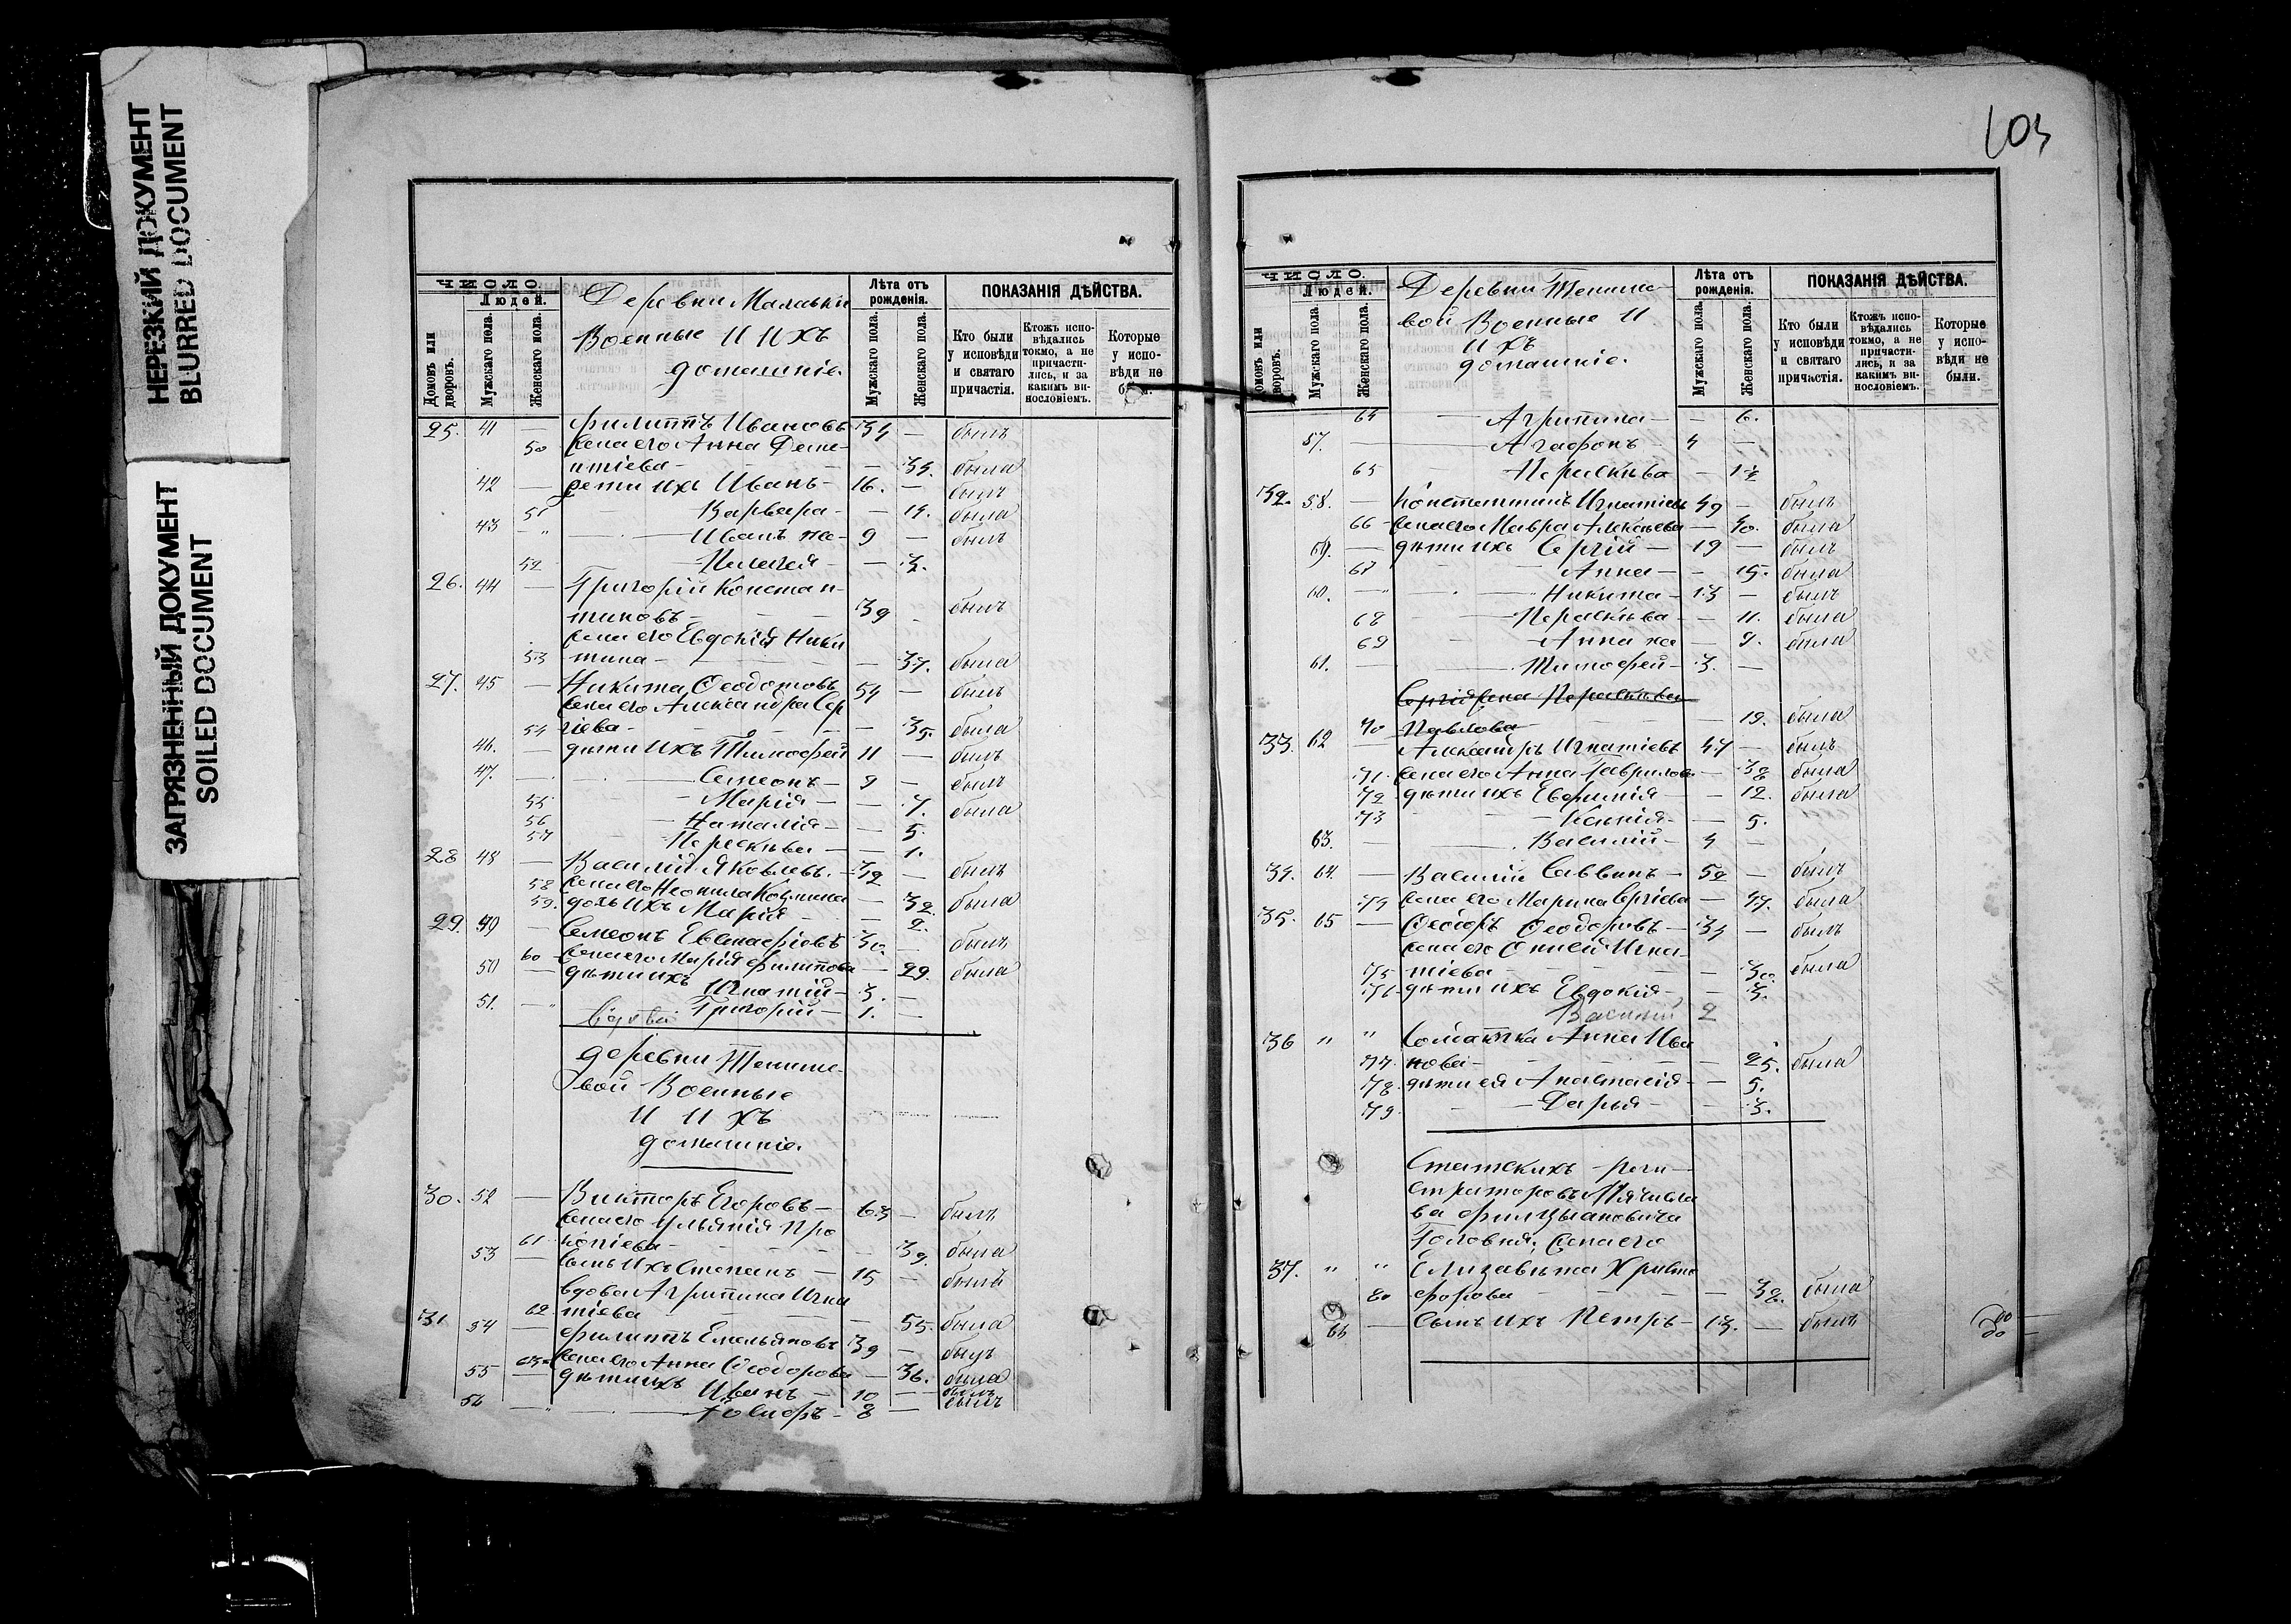 НЕРЕЗКИЙ ДОКУМЕНТ
BLURRED DOCUMENT
ЗАГРЯЗНЕННЫЙ ДОКУМЕНТ
SOILED DOCUMENT
ЧИСЛО.
Людей.
Домовъ или дворовъ.
Мужскаго пола.
Женскаго пола.
Деревни Малавки
Военные и ихъ
домашніе.
Лѣта отъ рожденія.
Мужскаго пола.
Женскаго пола.
ПОКАЗАНІЯ ДѢЙСТВА.
Кто были у исповѣди и святаго причастія.
Ктожъ исповѣдались токмо, а не причастились, и за какимъ винословіемъ.
Которые у исповѣди не
25. 41 — Филиппъ Ивановъ 34 — былъ
50 жена его Анна Деме-
нтіева — — 35. была
42 — дети ихъ Иванъ — 16. — былъ
51 Варвара — — 14. была
43 — " — Иванъ же — 9 — былъ
52 Пелагея — — 3.
26. 44 — Григорій Констан-
тиновъ — 39 — былъ
жена его Евдокія Ники
53 тина — — 37. была
27. 45 — Никита Ѳеодотовъ 54 — былъ
жена его Александра Сер
54 гіева — — 35. была
46. — дѣти ихъ Тимофей 11 — былъ
47. — Семеонъ — 9 — былъ
55 Марія — — 7. была
56 Наталія — — 5.
57 Параскѣва — — 1.
28 48 — Василій Яковлевъ. — 32 — былъ
58 жена его Неонила Козмина — 32. была
59. дочь ихъ Марія — — 2.
29. 49 — Симеонъ Евстафіовъ 30. — былъ
60 жена его Марія Филиппова — 29. была
50 — дѣти ихъ Игнатій — 3. —
51. — " Григорій — 1. —
деревни Тениче-
вой Военные
и ихъ
домашніе.
30. 52 — Викторъ Егоровъ — 63 — былъ
жена его Ульянія Про
61 копіева — — 39. была
53 — сынъ ихъ Степанъ — 15 — былъ
вдова Агрипина Игна
62 тіева — — 55. была
31. 54 — Филиппъ Емельяновъ 39 — былъ
63 жена его Анна Ѳеодорова — 36. была
55 — дѣти ихъ Иванъ — 10 — былъ
56 — " — Ѳеодоръ — 8 — былъ
103
ЧИСЛО.
Людей.
Домовъ или дворовъ.
Мужскаго пола.
Женскаго пола.
Деревни Тениче-
вой Военные и
ихъ
домашніе.
Лѣта отъ рожденія.
Мужскаго пола.
Женскаго пола.
ПОКАЗАНІЯ ДѢЙСТВА.
Кто были у исповѣди и святаго причастія.
Ктожъ исповѣдались токмо, а не причастились, и за какимъ винословіемъ.
Которые у исповѣди не были.
64 — Агрипина — — 6.
57. — Агафонъ 4 —
65 Параскѣва — 1½
32. 58. — Константинъ Игнатіевъ 49 — былъ
66 — жена его Мавра Алексѣева — 40. была
59. — дѣти ихъ Сергій — 19 — былъ
67 Анна — — 15. была
60. — " — Никита — 13 — былъ
68 Параскѣва — — 11. была
69 Анна же — 9. была
61. — Тимофей — 3. —
Сергія жена Параскѣва
70 Павлова — 19. была
33. 62 — Александръ Игнатіевъ 47 — былъ
71. жена его Анна Гаврилова — 38 была
72. дѣти ихъ Евфимія — — 12. была
73 Ксенія — — 5.
63. — Василій — 4 —
34. 64 — Василій Саввинъ — 52 — былъ
74 жена его Марина Сергіева — 47. была
35. 65 — Ѳеодоръ Ѳеодоровъ — 34 — былъ
жена его Ѳинея Игна-
75 тіева — — 30. была
76 дѣти ихъ Евдокія — — 3.
Василій 2
36 " " Солдатка Анна Ива
77. нова — — 25. была
78. дѣти ея Анастасія — — 5.
79. — Дарья — — 3.
Статскихъ реги-
страторовъ
Головня; жена его
37. " " Елизавета Христо
80 форова — — 38. была
66 — Сынъ ихъ Петръ — 13. — былъ